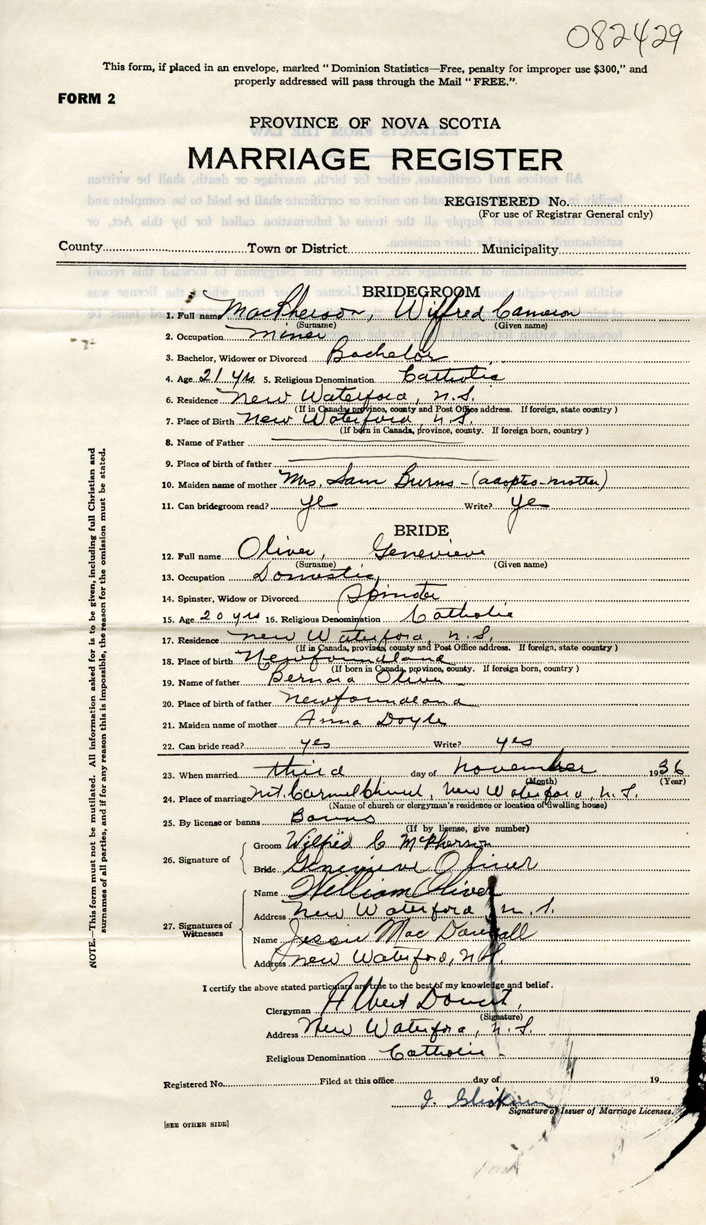 082429
This form, if placed in an envelope, marked "Dominion Statistics—Free, penalty for improper use $300," and
properly addressed will pass through the Mail "FREE.".
FORM 2
PROVINCE OF NOVA SCOTIA
MARRIAGE REGISTER
REGISTERED No.
(For use of Registrar General only)
County Town or District Municipality
BRIDEGROOM
1. Full name MacPherson, Wilfred Cameron
(Surname) (Given name)
2. Occupation miner
3. Bachelor, Widower or Divorced Bachelor
4. Age 21 yrs 5. Religious Denomination Catholic
6. Residence New Waterford, N.S.
(If in Canada, province, county and Post Office address. If foreign, state country)
7. Place of Birth New Waterford N.S.
(If born in Canada, province, county. If foreign born, country)
8. Name of Father
9. Place of birth of father
10. Maiden name of mother Mrs. Sam Burns - (adopted-mother)
11. Can bridegroom read? ye Write? ye
BRIDE
12. Full name Oliver, Genevieve
(Surname) (Given name)
13. Occupation Domestic
14. Spinster, Widow or Divorced Spinster
15. Age 20 yrs 16. Religious Denomination Catholic
17. Residence New Waterford, N.S.
(If in Canada, province, county and Post Office address. If foreign, state country)
18. Place of birth Newfoundland
(If born in Canada, province, county. If foreign born, country)
19. Name of father Bernard Oliver
20. Place of birth of father Newfoundland
21. Maiden name of mother Anna Doyle
22. Can bride read? yes Write? yes
23. When married third day of November 1936
(Month) (Year)
24. Place of marriage Mt. Carmel Church, New Waterford, N.S.
(Name of church or clergyman's residence or location of dwelling house)
25. By license or banns Banns
(If by license, give number)
26. Signature of Groom Wilfred C McPherson
Bride Genevieve Oliver
27. Signatures of Witnesses Name William Oliver
Address New Waterford N.S.
Name Jessie Mac Dougall
Address New Waterford, N.S.
I certify the above stated particulars are true to the best of my knowledge and belief.
Clergyman Albert
(Signature)
Address New Waterford, N.S.
Religious Denomination Catholic
Registered No. Filed at this office day of 19
I.
Signature of Issuer of Marriage Licenses.
[SEE OTHER SIDE]
NOTE.—This form must not be mutilated. All information asked for is to be given, including full Christian and
surnames of all parties, and if for any reason this is impossible, the reason for the omission must be stated.